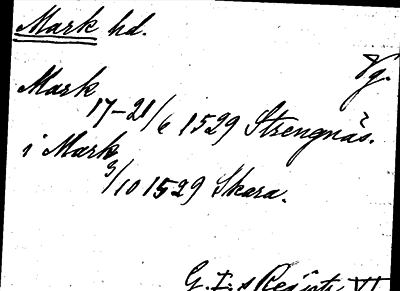 Mark hd.
Vg.
Mark
17-21/6 1529 Strengnäs.
i Mark
3/10 1529 Skara.
G. I:s Registr. VI